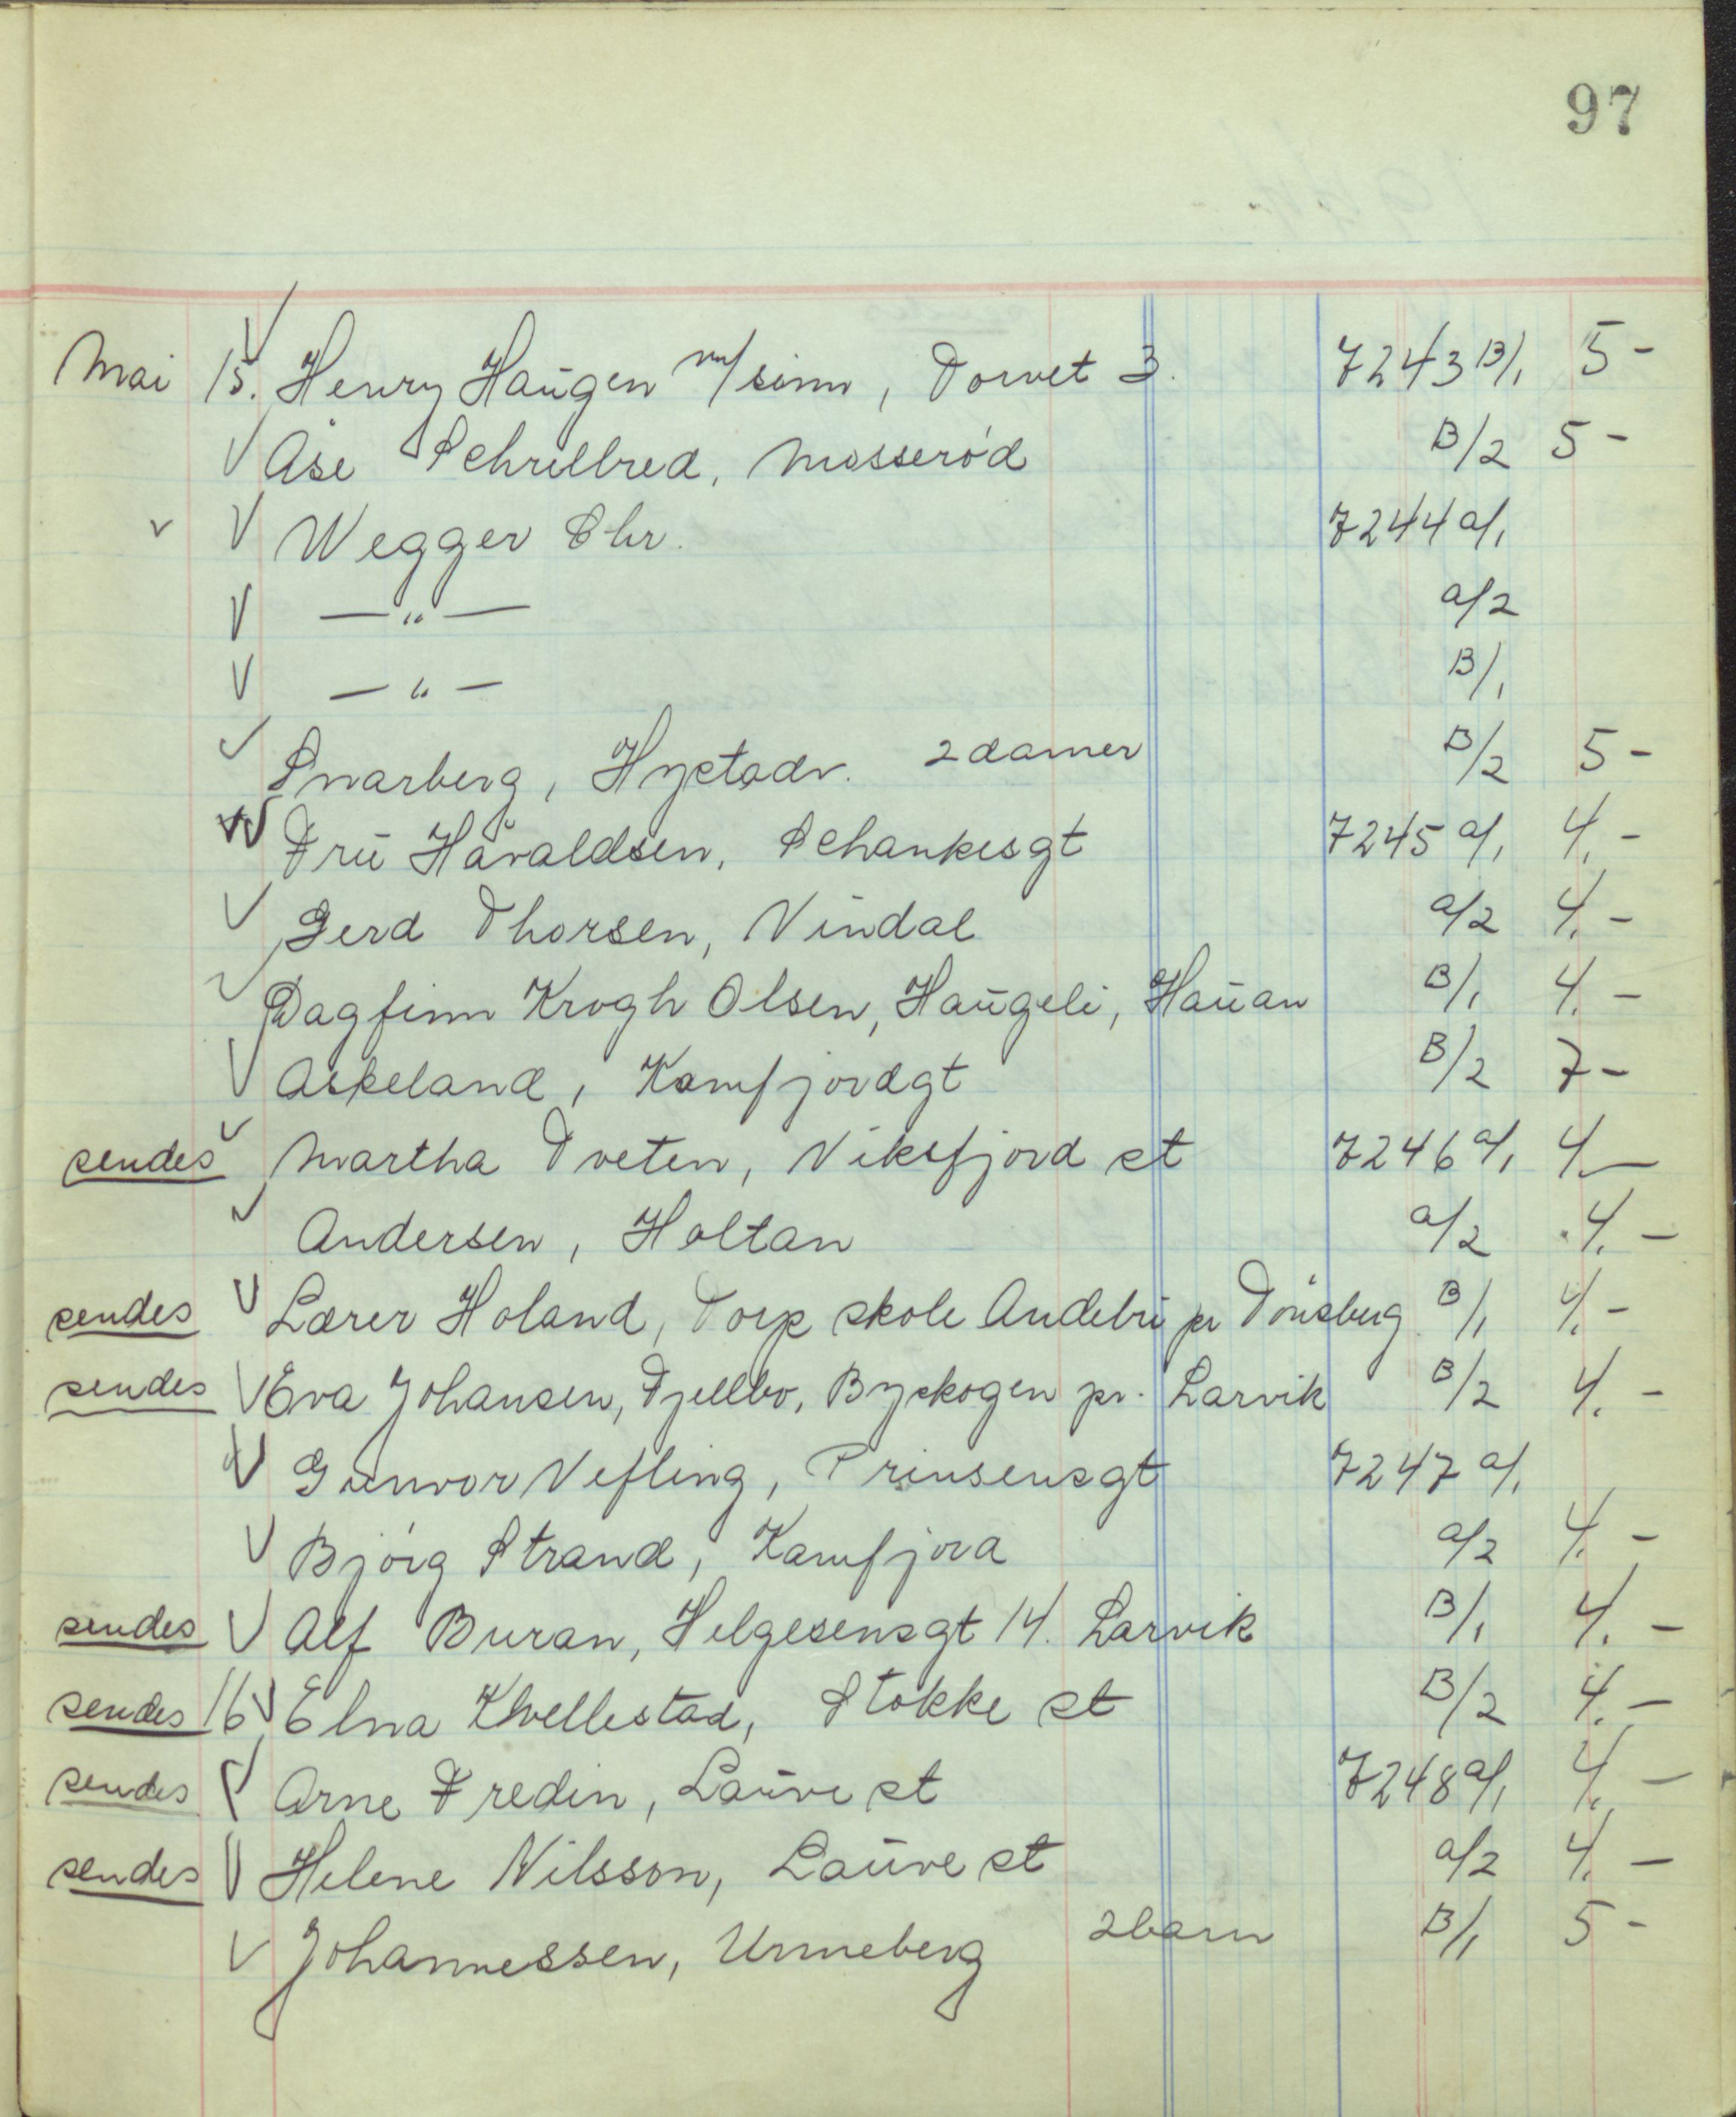 97
Mai 15. Henry Haugen m/sønn, Torvet 3. 7243 B/1 5 -
Åse Schrellred, Mosserød B/2 5 -
Wegger Chr. 7244 a/1
— " — a/2
— " — B/1
Snarberg, Hystadv. 2 damer B/2 5 -
Fru Håvaldsen, Schankesgt 7245 a/1 4. -
Gerd Thorsen, Vindal a/2 4. -
Dagfinn Krogh Olsen, Haugeli, Hauan B/1 4. -
Askeland, Kamfjordgt B/2 7 -
sendes Martha Tveten, Viksfjord st 7246 a/1 4. -
Andersen, Holtan a/2 4. -
sendes Lærer Holand, Torp skole Andebu pr Tønsberg B/1 4. -
sendes Eva Johansen, Fjellbo, Byskogen pr. Larvik B/2 4. -
Gunvor Vefling, Prinsensgt 7247 a/1
Bjørg Strand, Kamfjord a/2 4. -
sendes Alf Buran, Helgesensgt 14. Larvik B/1 4. -
sendes 16 Elna Kvellestad, Stokke st B/2 4. -
sendes Arne Fredin, Lauve st 7248 a/1 4. -
sendes Helene Nilsson, Lauve st a/2 4. -
Johannessen, Unneberg 2 barn B/1 5 -